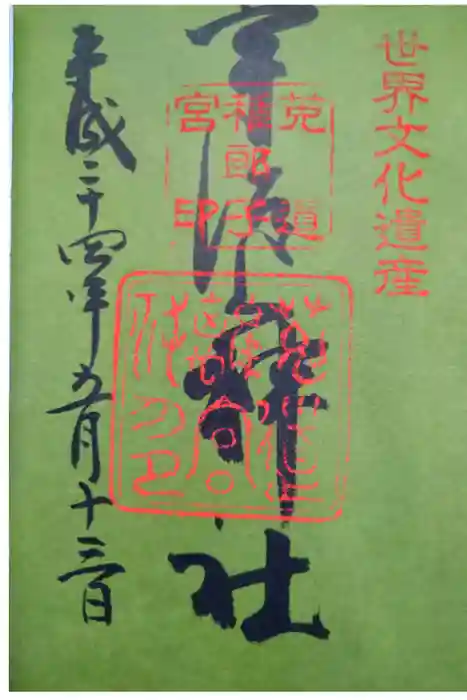 世界文化遺産
菟道
稚郎子
宮印
宇治上神社
平成二十四年五月十三日